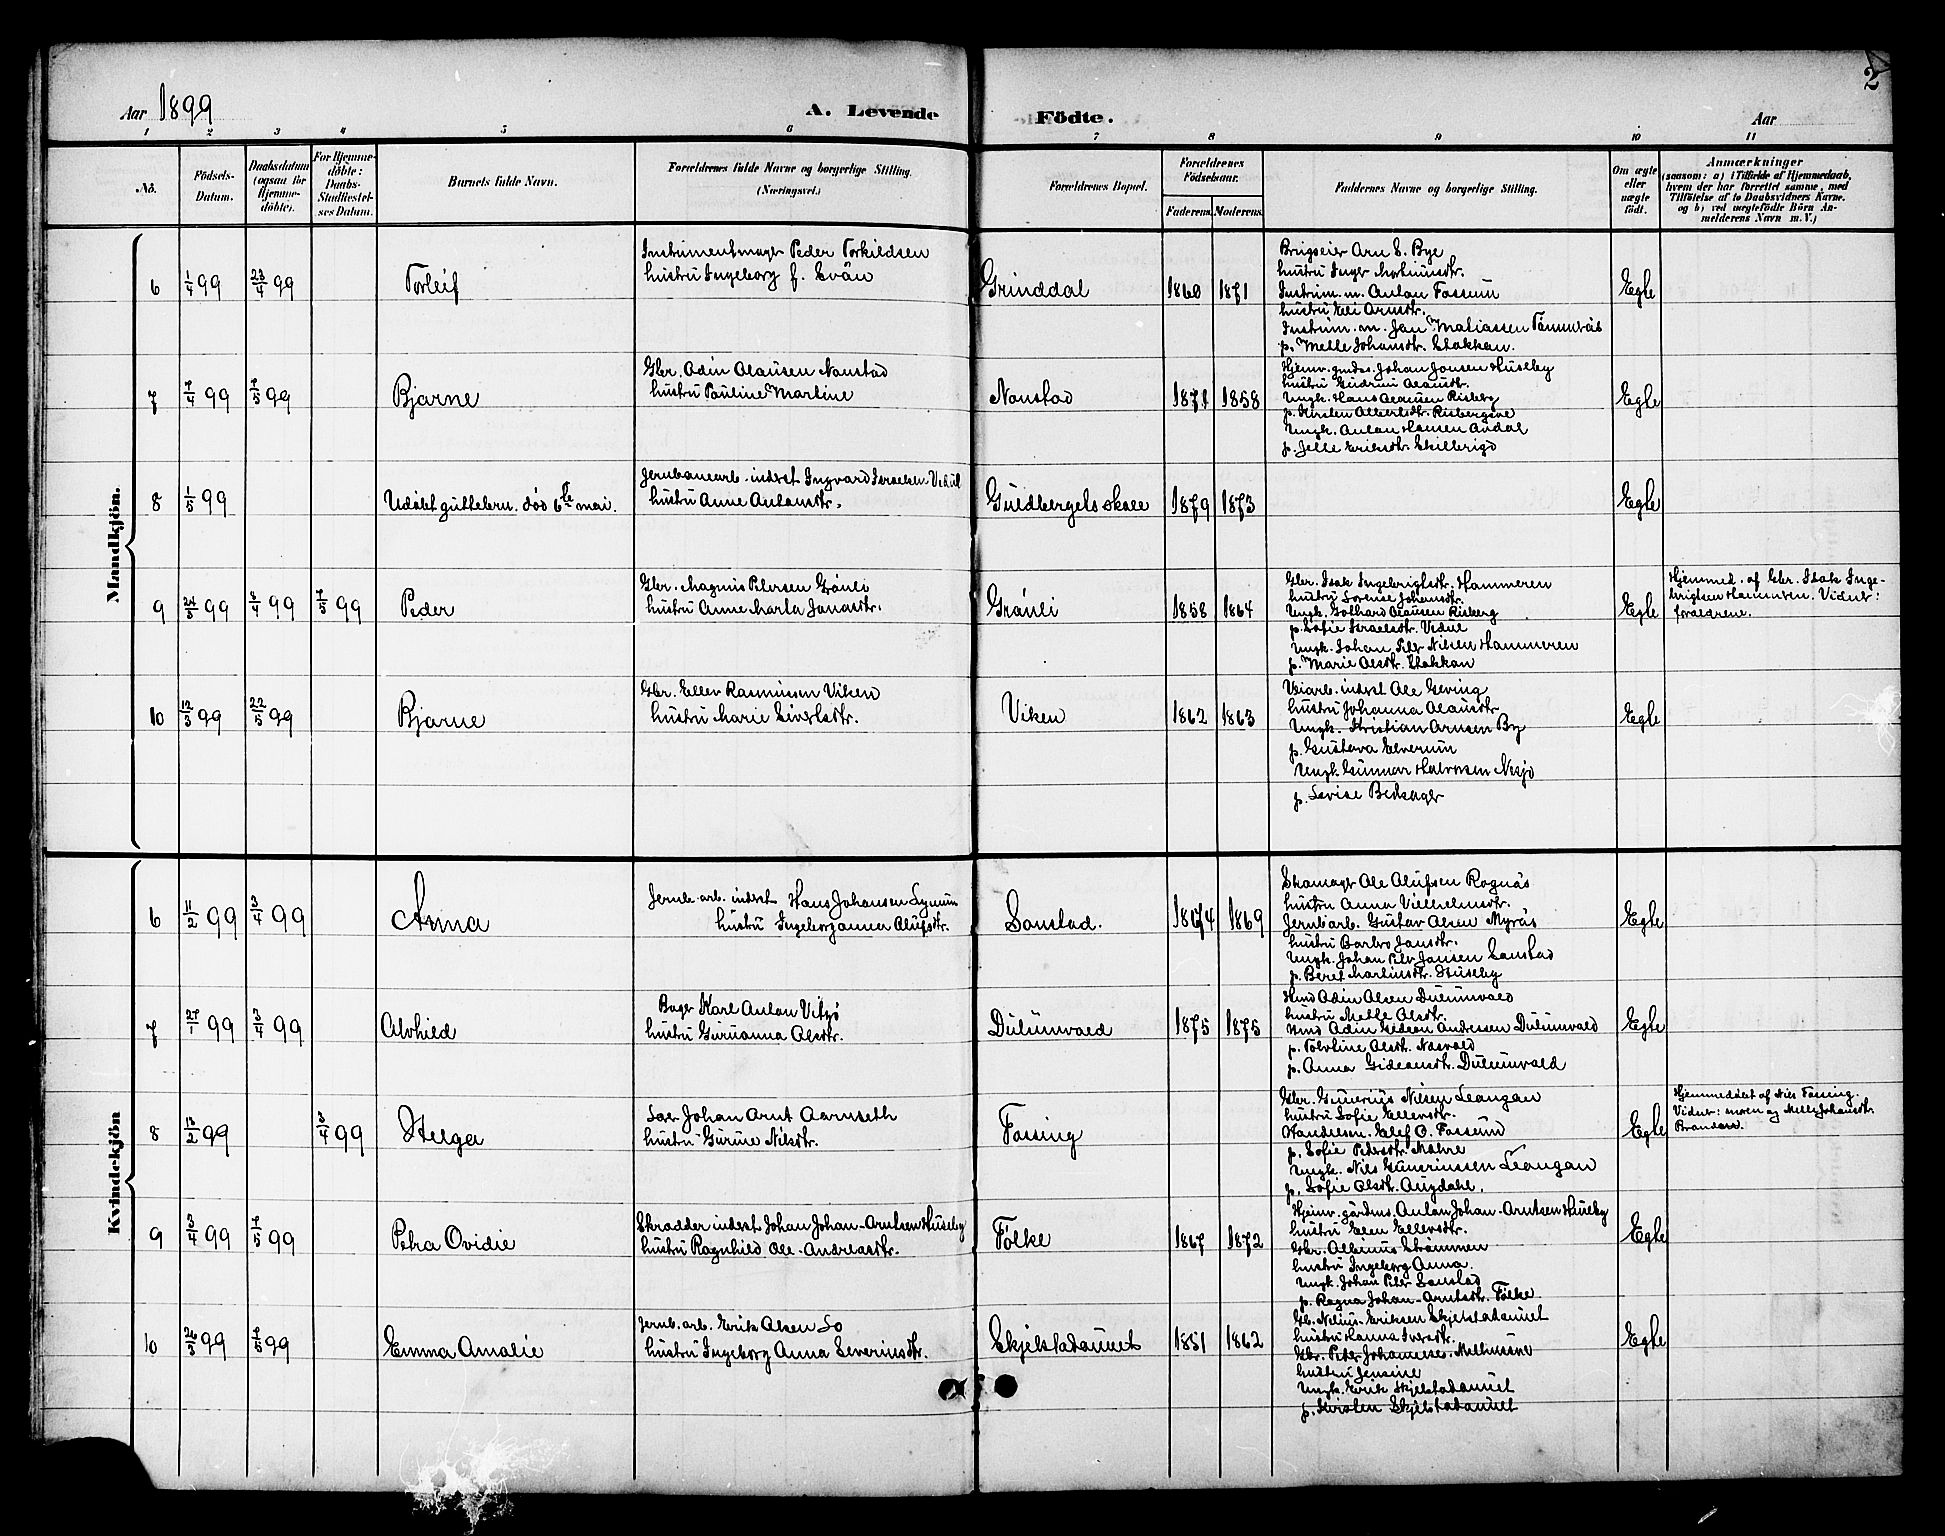 Aar 1899
A. Levende
Födte.
Aar
2
1 2 3 4 5 6 7 8 9 10 11
No.
Födsels-
Datum.
Daabsdatum
(ogsaa for
Hjemme-
döbte).
For Hjemme-
döbte:
Daabs-
Stadfæstel-
ses Datum.
Barnets fulde Navn.
Forældrenes fulde Navne og borgerlige Stilling.
(Næringsvei.)
Forældrenes Bopæl.
Forældrenes
Födselsaar.
Faderens.
Moderens.
Faddernes Navne og borgerlige Stilling.
Om ægte
eller
uægte
födt.
Anmærkninger
(saasom: a) i Tilfælde af Hjemmedaab,
hvem der har forrettet samme, med
Tilföielse af to Daabsvidners Navne.
og b) ved uægtefödte Börn An-
melderens Navn m. V.)
Mandkjön.
6
1/4 99
23/4 99
Torleif
Instrumentmager Peder Torkildsen
hustru Ingeborg f. Svån
Grinddal
1860
1871
Brugseier Arn E. Bye
hustru Inger Mortinusdtr.
Instrum. m. Anton Fossum
hustru Eli Arnsdtr.
Instrum. m. Jon Matiassen Tømmerås
p. Melle Johansdtr. Stokkan.
Egte
7
7/4 99
7/5 99
Bjarne
Gbr. Odin Olausen Nonstad
hustru Pauline Martine
Nonstad
1871
1858
Hjemv. gmds. Johan Jonsen Huseby
hustru Gudrun Olausdtr.
Ungk. Hans Olausen Risberg
p. Kirsten Albertsdtr. Risbergsve
Ungk. Anton Hansen Avdal
p. Jelle Eriksdtr. Skillerigd
Egte
8
1/5 99
Udøbt guttebrn. død 6te mai.
Jernbanearb. inderst Ingvard Israelsen Vedul
hustru Anne Antonsdtr.
Guldbergels skole
1879
1873
Egte
9
24/3 99
3/4 99
7/5 99
Peder
Gbr. Magnus Petersen Grønli
hustru Anne Marta Jonasdtr.
Grønli
1858
1864
Gbr. Isak Ingebrigtsdtr. Hammeren
hustru Lorense Johansdtr.
Ungk. Gothard Olausen Risberg
p. Sofie Israelsdtr. Vedul
Ungk. Johan Peter Nilsen Hammeren
p. Marie Olsdtr. Stokkan
Egte
Hjemmed. af Gbr. Isak Inge-
brigtsen Hammeren. Vidner:
foreldrene.
10
12/3 99
22/5 99
Bjarne
Gbr. Ellev Rasmussen Viken
hustru Marie Sivertsdtr.
Viken
1862
1863
Veiarb. inderst Ole Geving
hustru Johanna Olausdtr.
Ungk. Kristian Arnsen By
p. Gustava Elverum
Ungk. Gunnar Halvorsen Nesjo
p. Lovise Bedsager
Egte
Kvindekjön
6
11/2 99
3/4 99
Anna
Jernb. arb. inderst Hans Johansen Lynum
hustru Ingeborganna Olufsdtr.
Sonstad.
1874
1869
Skomager Ole Olufsen Rognås
hustru Anna Vielhelmsdtr.
Jernb arb. Gustav Olsen Myrås
hustru Barbro Jonsdtr.
Ungk. Johan Petr Jonsen Sonstad
p. Beret Martinsdtr. Huseby
Egte
7
27/1 99
3/4 99
Alvhild
Bager Karl Anton Vitsø
hustru Guruanna Olsdtr.
Dulumvald
1875
1875
Hmd Odin Olsen Dulumvald
hustru Melle Olsdtr.
Hmd Odin Gideon Andressen Dulumvald
p. Tolvline Olsdtr. Nosvald
p. Anna Gideonsdtr. Dulumvald
Egte
8
13/2 99
3/4 99
Helga
Søer Johan Arnt Aarnseth
hustru Gurine Nilsdtr.
Fossing
Gbr. Gunerius Nilsen Leangan
hustru Sofie Ellevsdtr.
Handelsm. Elef O. Fossum
p. Sofie Pedersdtr. Mæhre
Ungk. Nils Gunerinssen Leangan
p. Sofie Olsdtr. Augdahl.
Egte
Hjemmedøbt af Nils Fossing.
Vidner: moren og Melle Johansdtr.
Brandaas.
9
3/4 99
7/5 99
Petra Ovidie
Skradder inderst Johan Johan-Arntsen Huseby
hustru Ragnhild Ole-Andreasdtr.
Folke
1867
1872
Hjemv. gårdms. Anton Johan-Arntsen Huseby
hustru Elen Ellevsdtr.
Gbr. Albinus Strømmen
hustru Ingeborg Anna.
Ungk. Johan Peter Sonstad
p. Ragna Johan-Arntsdtr. Folke
Egte
10
26/3 99
7/5 99
Emma Amalie
Jernb. arb. Erik Olsen Lo
hustru Ingeborg Anna Severinsdtr.
Skjelstadaunet
1851
1862
Gb. Nelius Eriksen Skjelstadaunet
hustru Hanna Iversdtr.
Gbr. Peter Johanneses. Melhusøve
hustru Jensine
Ungk. Erik Skjelstadaunet
p. Kirsten Skjelstadaunet
Egte